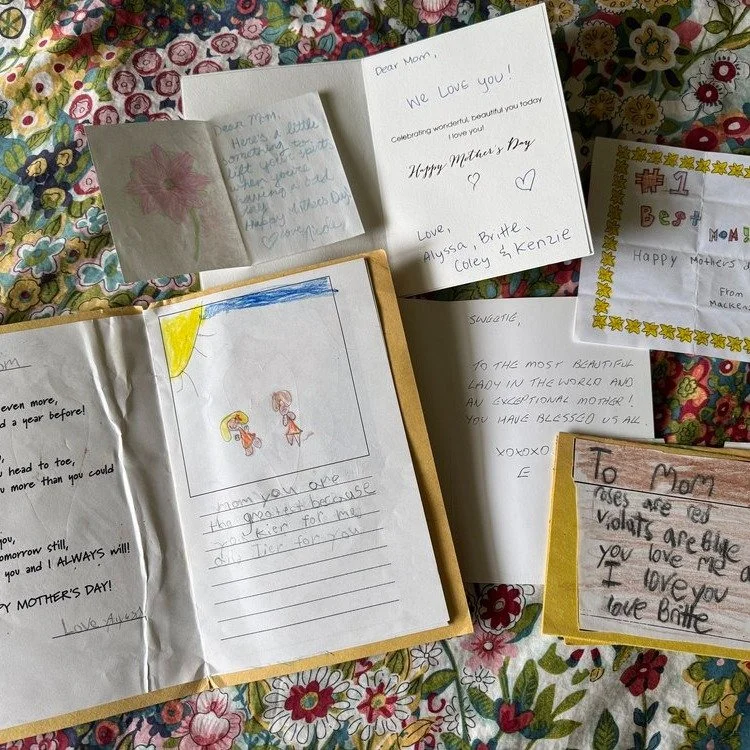 Dear Mom,
Here's a little
something to
lift your spirits
when you're
having a bad
day.
Happy Mothers Day
love, Nicole
Dear Mom,
We Love you!
Celebrating wonderful, beautiful you today
I love you!
Happy Mother's Day
Love,
Alyssa, Britte,
Coley & Kenzie
#1
Best
MOM!
Happy Mothers
From
Macken
even more,
d a year before!
u head to toe,
u more than you could
you,
omorrow still,
you and I ALWAYS will!
PY MOTHER'S DAY!
Love
mom you are
the greatest because
you kier for me
and kier for you
SWEETIE,
TO THE MOST BEAUTIFUL
LADY IN THE WORLD AND
AN EXCEPTIONAL MOTHER!
YOU HAVE BLESSED US ALL
XOXOXO
E
To Mom
roses are red
violuts are Blue
you love me
I love you
love Britte